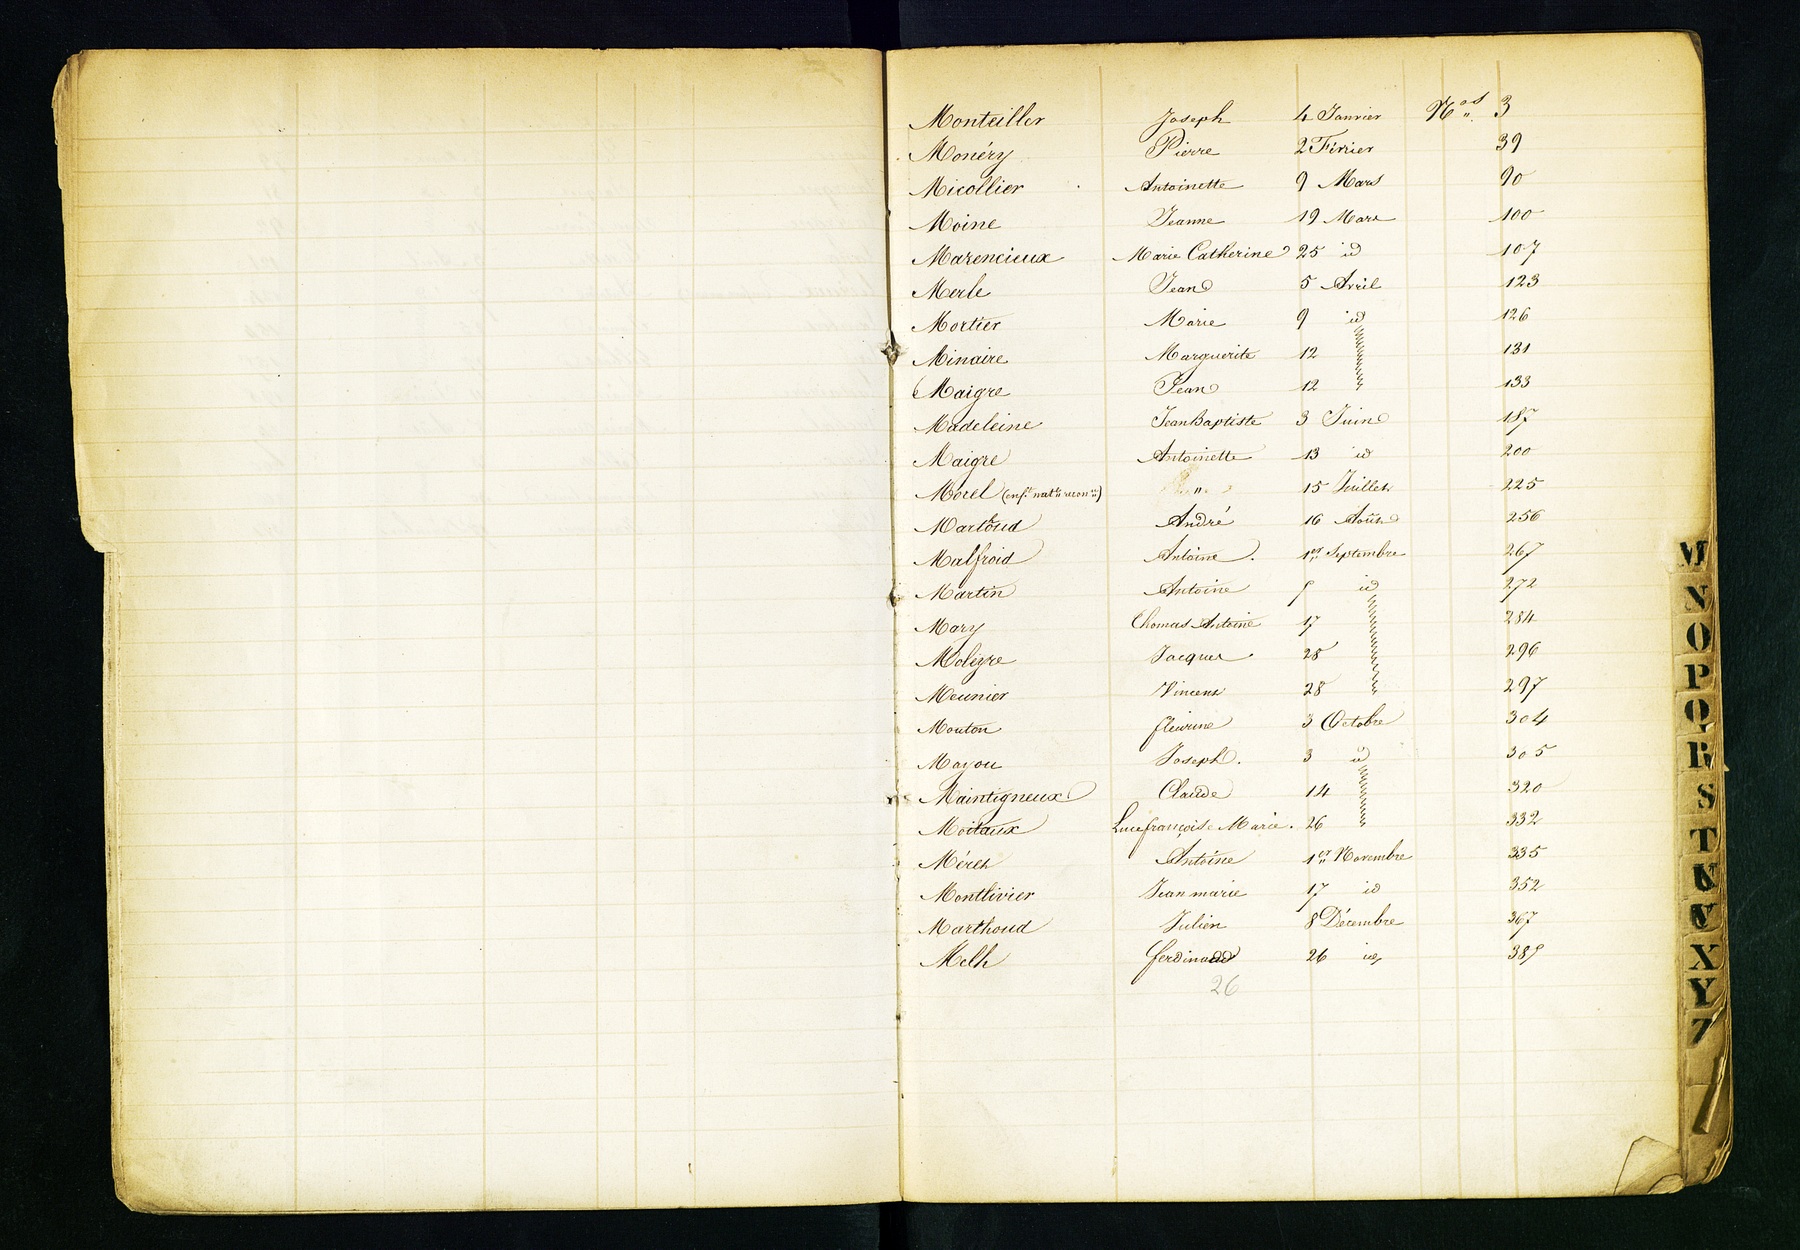 Monteiller Joseph 4 Janvier Nos 3
Monéry Pierre 2 Février 39
Micollier Antoinette 9 Mars 90
Moine Jeanne 19 Mars 100
Marencieux Marie Catherine 25 id 107
Merle Jean 5 Avril 123
Mortier Marie 9 id 126
Minaire Marguerite 12 " 131
Maigre Jean 12 " 133
Madeleine Jean Baptiste 3 Juin 187
Maigre Antoinette 13 id 200
Morel (enft natel recon) " 15 Juillet 225
Martoud André 16 Août 256
Malfroid Antoine. 1er Septembre 267
Martin Antoine 5 id 272
Mary Thomas Antoine 17 284
Malègre Jacques 28 296
Meunier Vincent 28 " 297
Mouton fleurine 3 Octobre 304
Mayou Joseph. 3 id 305
Maintigneux Claude 14 320
Moitaux Luce françoise Marie. 26 " 332
Méret Antoine 1er Novembre 335
Montlivier Jean marie 17 id 352
Marthoud Julien 8 Décembre 367
Melh ferdinand 26 id 385
26
M
N
O
P
Q
R
S
T
U
V
X
Y
Z